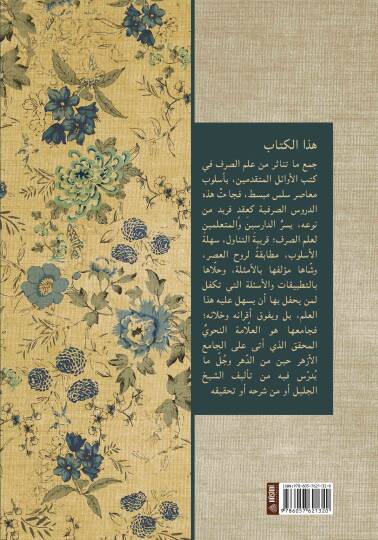 هذا الكتاب
جمع ما تناثر من علم الصرف في
كتب الأوائل المتقدمين، بأسلوب
معاصر سلس مبسط، فجاءت هذه
الدروس الصرفية كعقد فريد من
نوعه، يسرُّ الدارسين والمتعلمين
لعلم الصرف؛ قريبة التناول، سهلة
الأسلوب، مطابقةً لروح العصر،
وشّاها مؤلفها بالأمثلة، وحلّاها
بالتطبيقات والأسئلة التي تكفل
لمن يحفل بها أن يسهل عليه هذا
العلم، بل ويفوق أقرانه وخلانه؛
فجامعها هو العلّامة النحويُّ
المحقق الذي أتى على الجامع
الأزهر حين من الدّهر وجُلّ ما
يُدرّس فيه من تأليف الشيخ
الجليل أو من شرحه أو تحقيقه
ISBN: 978-605-7621-32-0
9786057621320
HİSEMİ